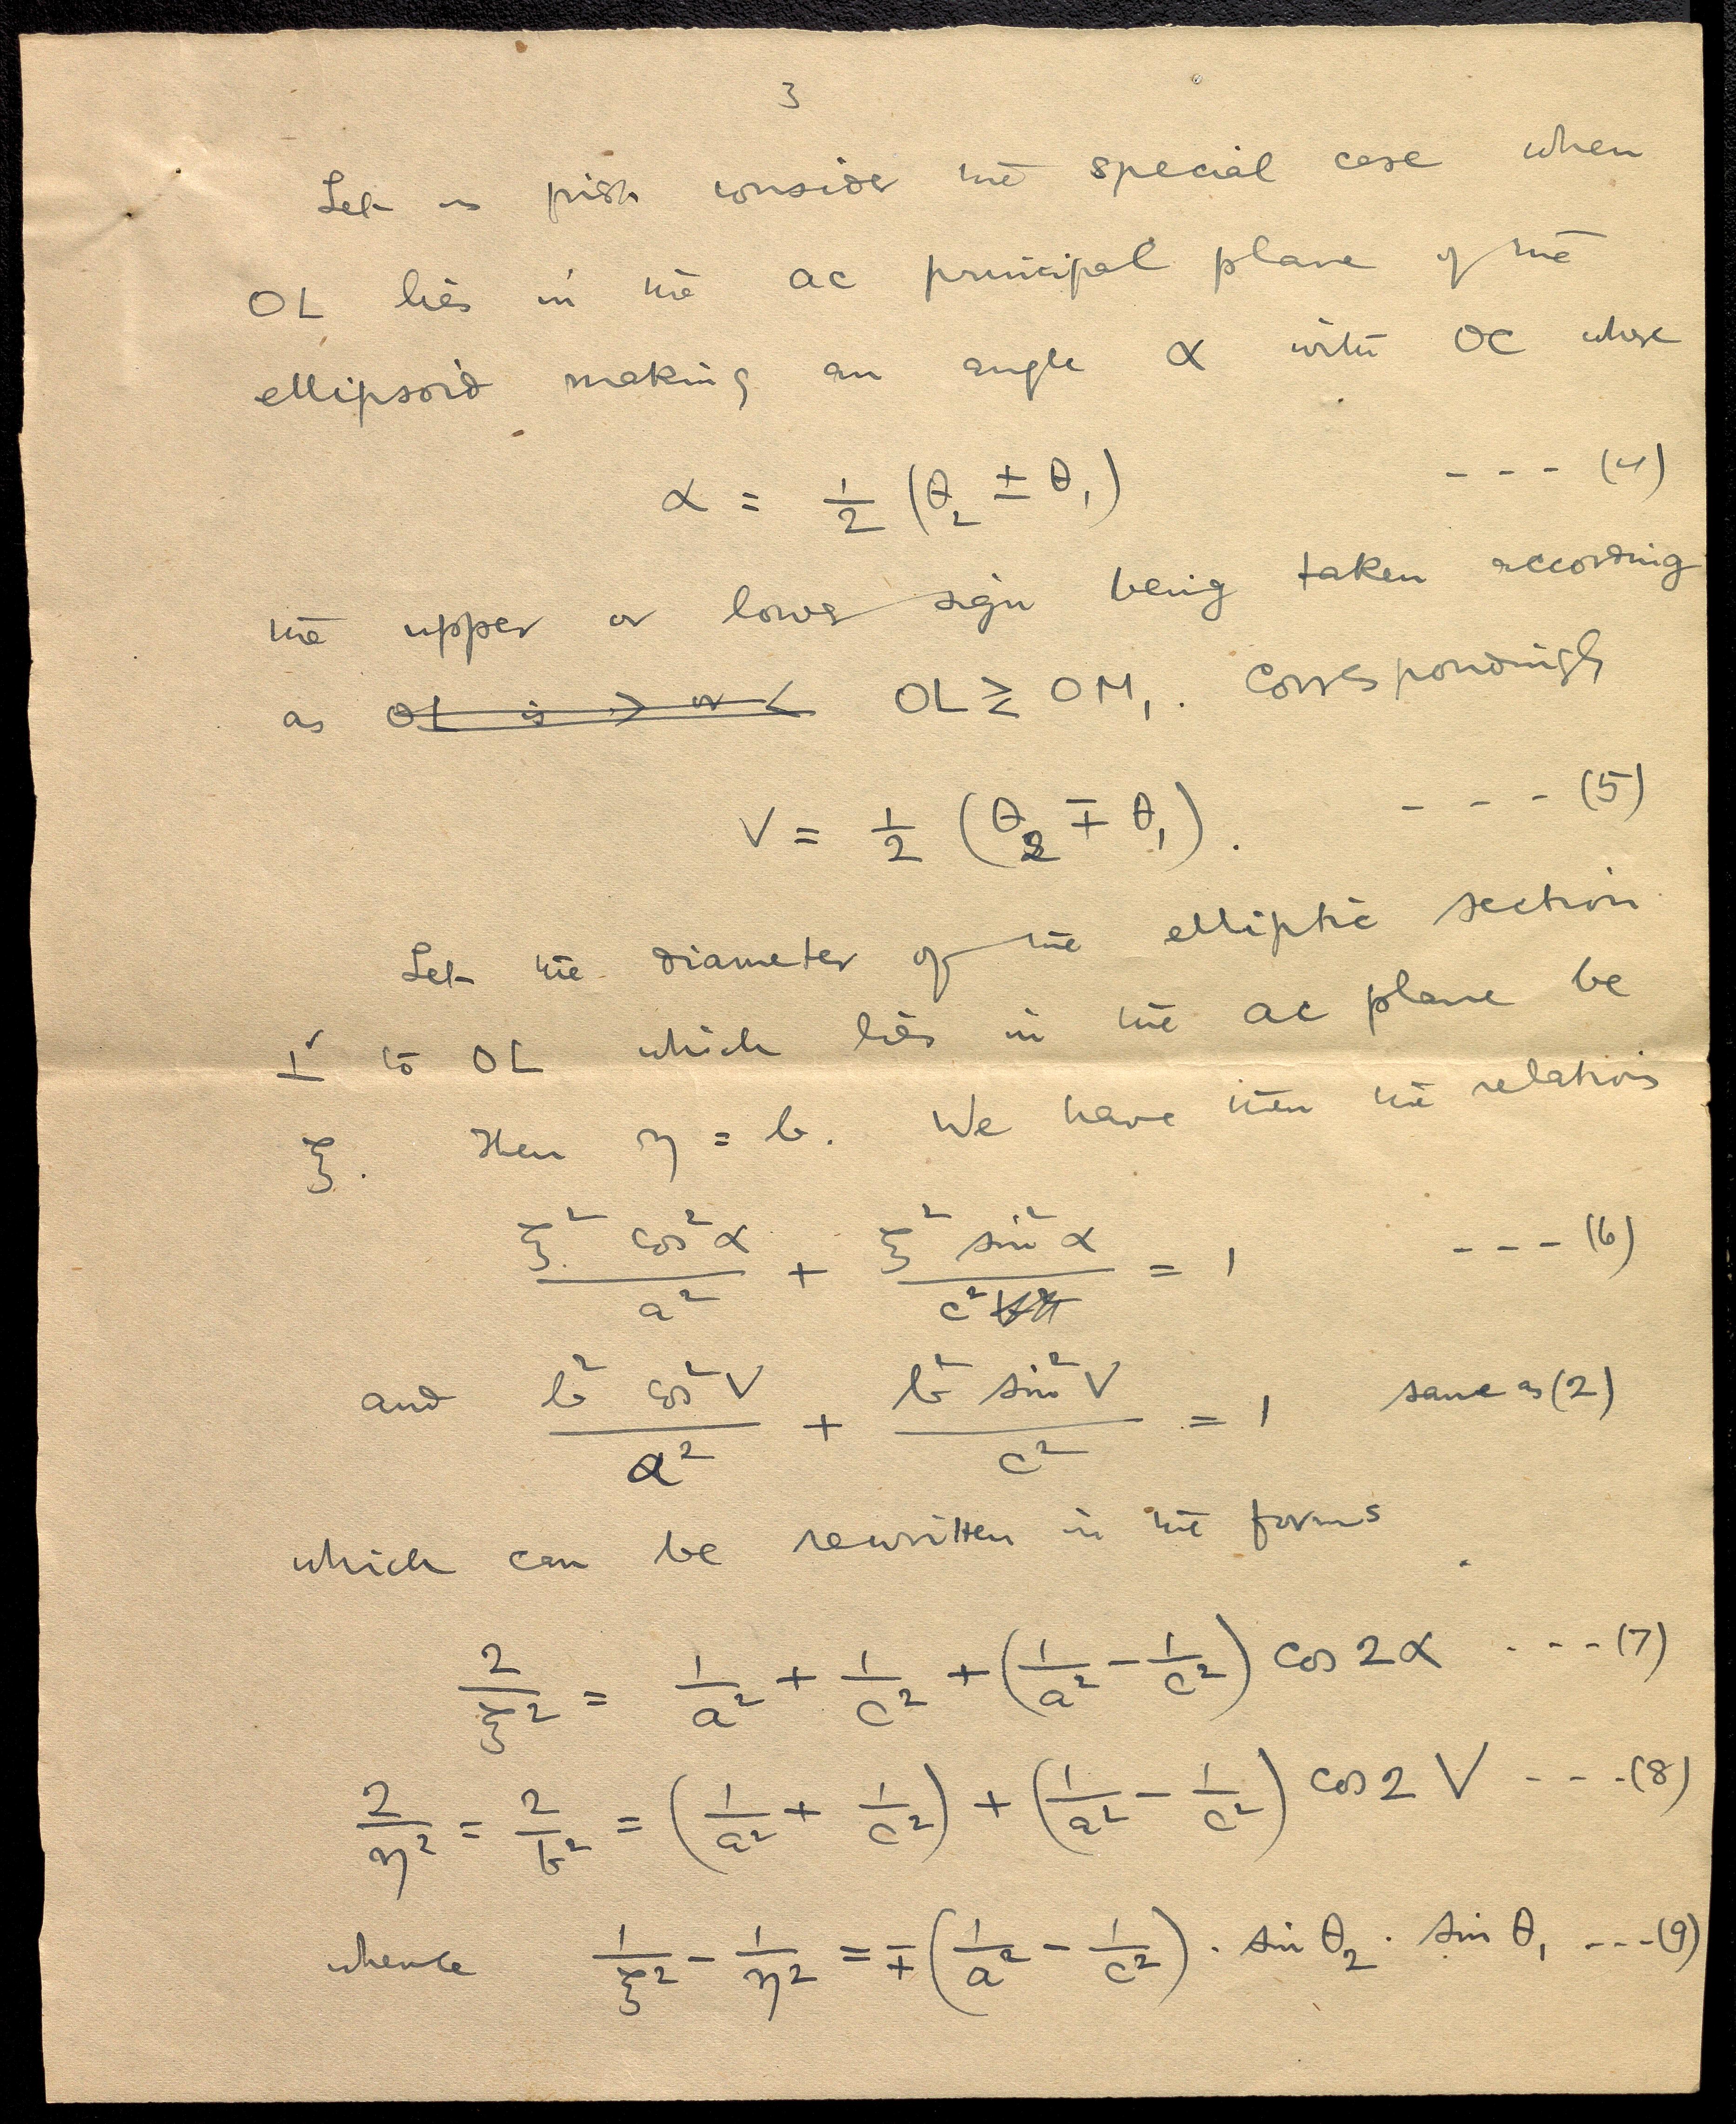 3
Let us first consider the special case when
OL lies in the ac principal plane of the
ellipsoid making an angle α with OC where
α = 1/2 (θ₂ ± θ₁) - - - (4)
the upper or lower sign being taken according
as OL is > or < OL ≷ OM₁. Correspondingly
V = 1/2 (θ₂ ∓ θ₁). - - - (5)
Let the diameter of the elliptic section
⊥r to OL which lies in the ac plane be
ξ. Then η = b. We have then the relations
ξ² cos²α / a² + ξ² sin²α / c² = 1 - - - (6)
and b² cos²V / a² + b² sin²V / c² = 1 same as (2)
which can be rewritten in the forms
2/ξ² = 1/a² + 1/c² + (1/a² - 1/c²) cos 2α - - - (7)
2/η² = 2/b² = (1/a² + 1/c²) + (1/a² - 1/c²) cos 2V - - - (8)
whence 1/ξ² - 1/η² = ∓ (1/a² - 1/c²) · sin θ₂ · sin θ₁ - - - (9)